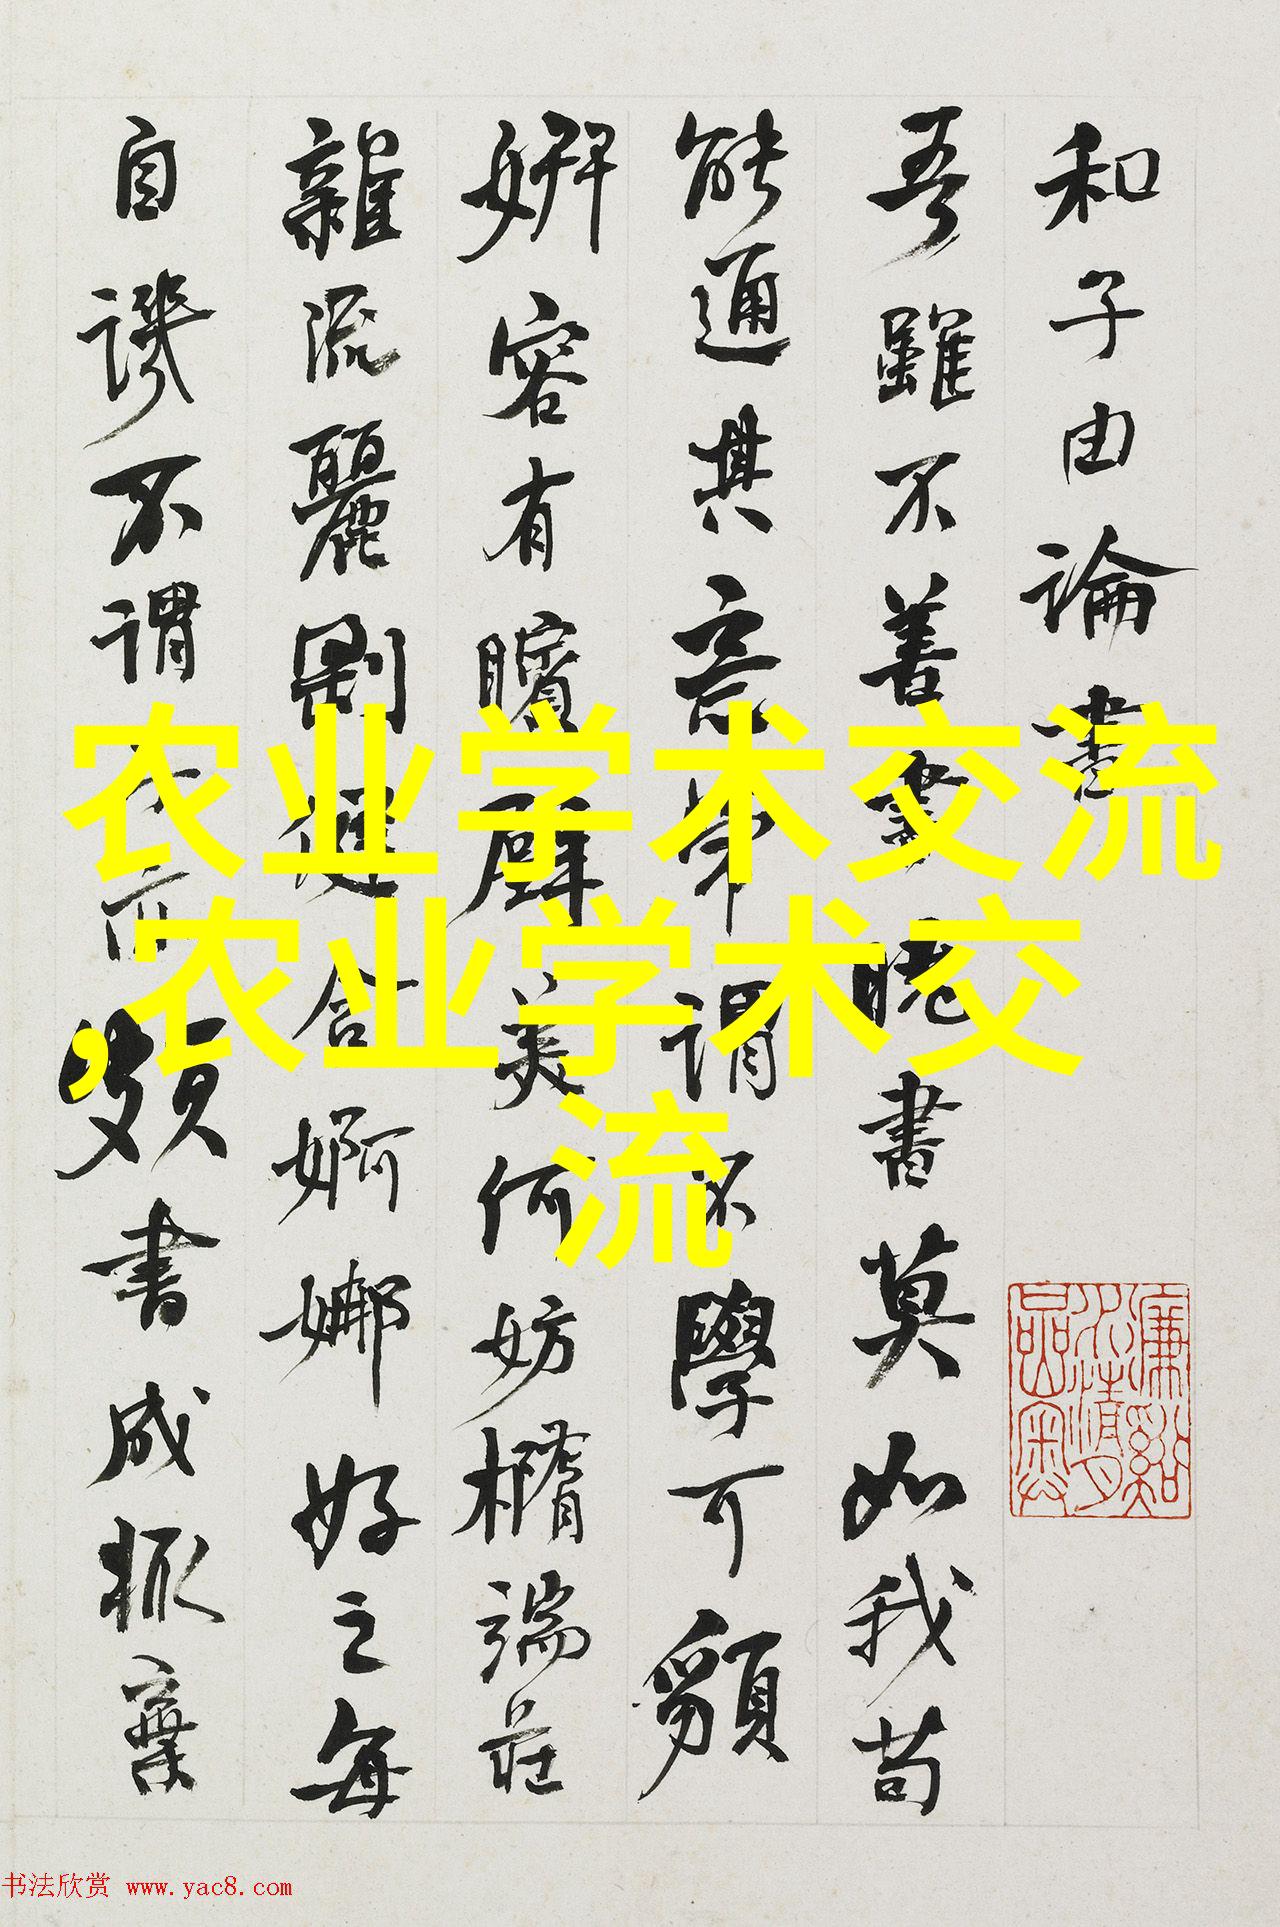 和子由論書
吾雖不善書曉書莫如我苟
能通其意常謂不學可貌
妍容有矉璧美何妨橢端莊
雜流麗剛健含婀娜好之每
自譏不謂子亦頗書成輒棄
农业学术交流
,农业学术交
流
书法欣赏 www.yac8.com